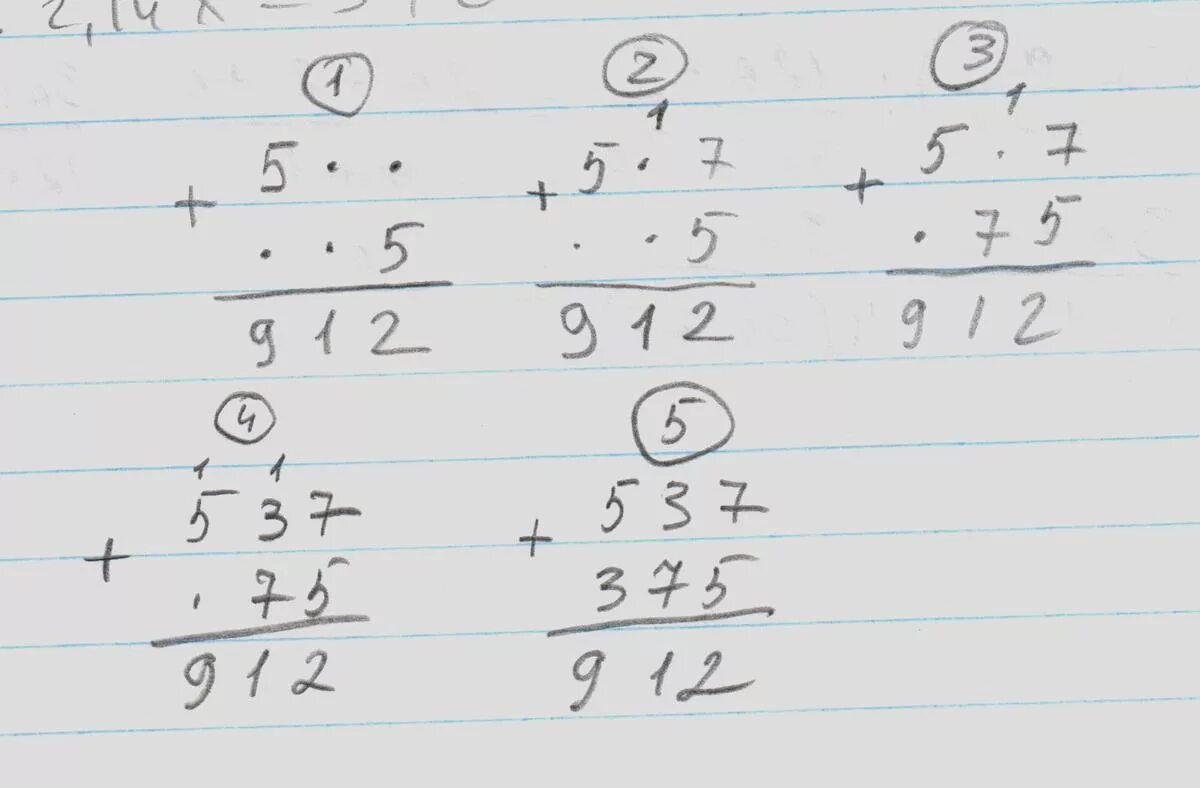 2,14x = 3
1 2 3
1 1
5 · · 5 · 7 5 · 7
+ + +
· · 5 · · 5 · 7 5
912 912 912
4 5
1 1
537 537
+ +
· 75 375
912 912